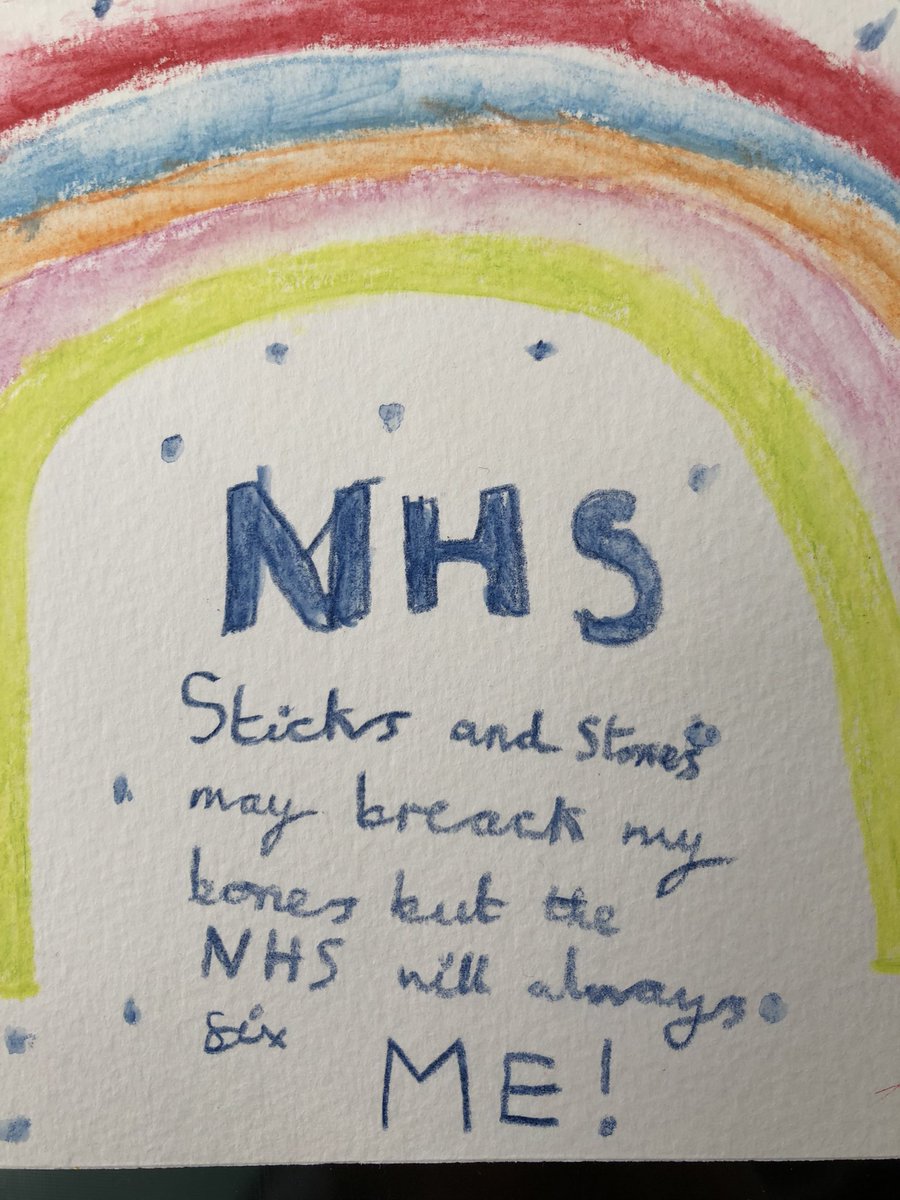 NHS
Sticks and stones
may breack my
bones but the
NHS will always
six
ME!